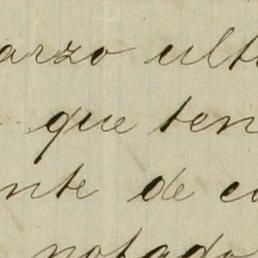 arzo ult
que ten
nte de co
notado